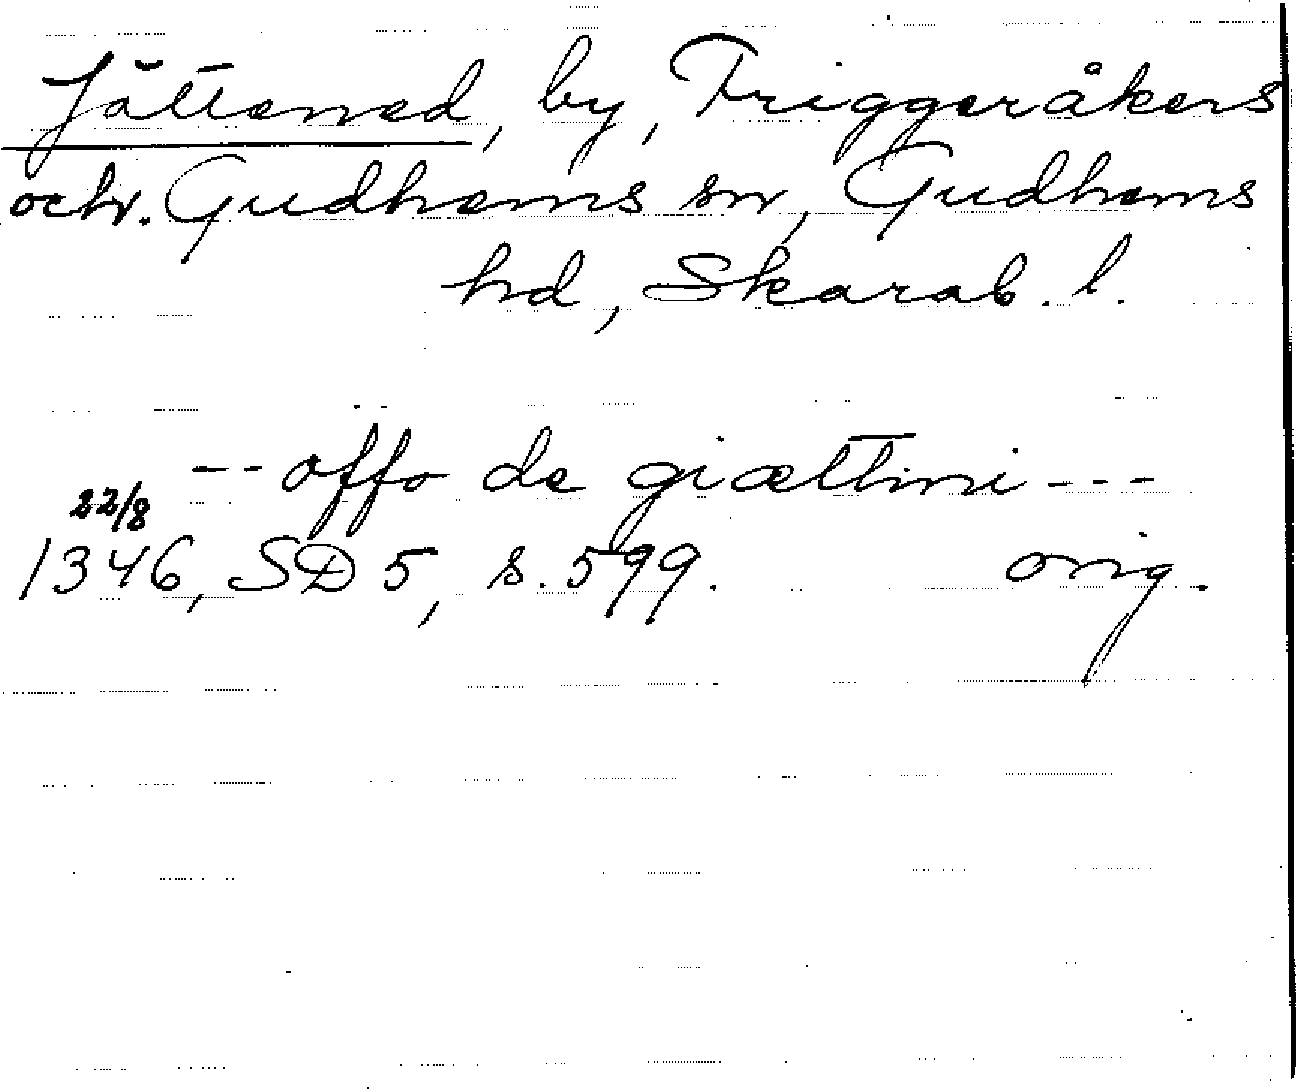 Jättened, by, Friggeråkers
och. Gudhems sn, Gudhems
hd, Skarab. l.
-- offo de giættini ---
22/8
1346, SD 5, s. 599. orig.